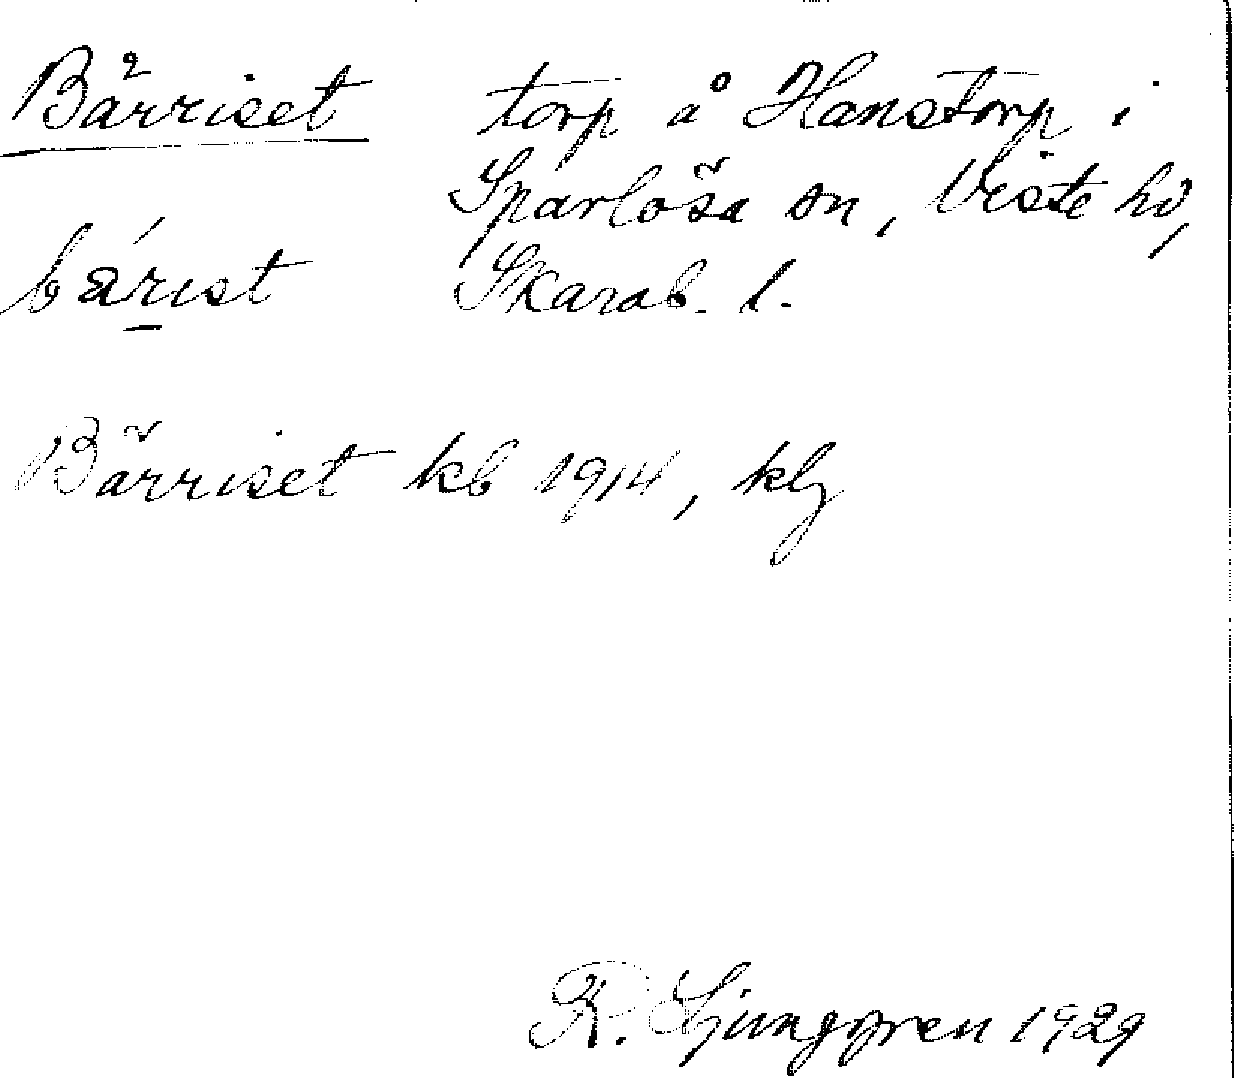 Bärriset torp å Hanstorp i
Sparlösa sn, Viste hd,
bárıst Skarab. l.
Bärriset kb 1914, klg
R. Ljunggren 1929